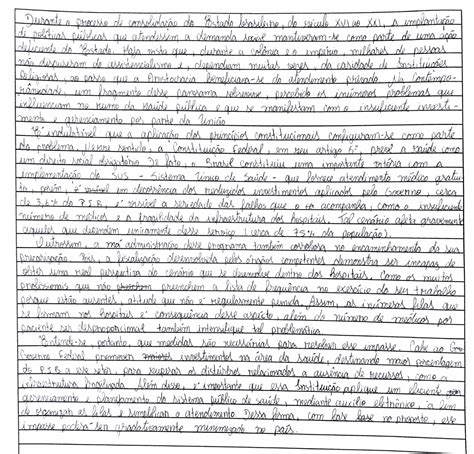 Durante o processo de consolidação do Estado brasileiro, do século XVI ao XXI, a implantação
de políticas públicas que atendessem a demanda social mantiveram-se como parte de uma ação
deficiente do Estado. Haja vista que, durante a colônia e o império, milhares de pessoas
não dispuseram do assistencialismo e, dependiam muitas vezes, da caridade de Instituições
Religiosas, ao passo que a Aristocracia beneficiava-se do atendimento privado. Na Contempo-
râneidade, um fragmento desse panorama sobrevive, percebido os inúmeros problemas que
influenciam no rumo da saúde pública e que se manifestam com o insuficiente investi-
mento e gerenciamento por parte da União.
É indubitável que a aplicação dos princípios constitucionais configuram-se como parte
do problema. Nesse sentido, a Constituição Federal, em seu artigo 6º, prevê a saúde como
um direito social obrigatório. De fato, o Brasil constituiu uma importante vitória com a
implementação do SUS - Sistema Único de Saúde - que fornece atendimento médico gratui-
to, porém, é em decorrência dos reduzidos investimentos aplicados pelo Governo, cerca
de 3,6% do P.I.B, é visível a seriedade das falhas que o acompanha, como o insuficiente
número de médicos e a fragilidade da infraestrutura dos hospitais. Tal cenário afeta gravemente
aqueles que dependem unicamente desse serviço (cerca de 75% da população).
Outrossem, a má administração desse programa também corrobora no encaminhamento da sua
precarização. Pois, a fiscalização desenvolvida pelos órgãos competentes demonstra ser incapaz de
obter uma real perspectiva do cenário que se desenvolve dentro dos hospitais. Como os muitos
profissionais que não preenchem a lista de frequência no exercício do seu trabalho
porque estão ausentes, atitude que não é regularmente punida. Assim, as inúmeras filas que
se formam nos hospitais é consequência desse aspecto, além do número de médicos por
paciente ser desproporcional também intensifique tal problemática.
Entende-se, portanto, que medidas são necessárias para resolver esse impasse. Cabe ao Go-
verno Federal promover investimentos na área da saúde, destinando maior porcentagem
do P.I.B a esse setor para superar os distúrbios relacionados a ausência de recursos, como a
infraestrutura fragilizada. Além disso, é importante que essa Instituição aplique um eficiente
gerenciamento e planejamento do sistema público de saúde, mediante auxílio eletrônico, a fim
de organizar as filas e simplificar o atendimento. Dessa forma, com base no proposto, esse
impasse poderá ser gradativamente minimizado no país.